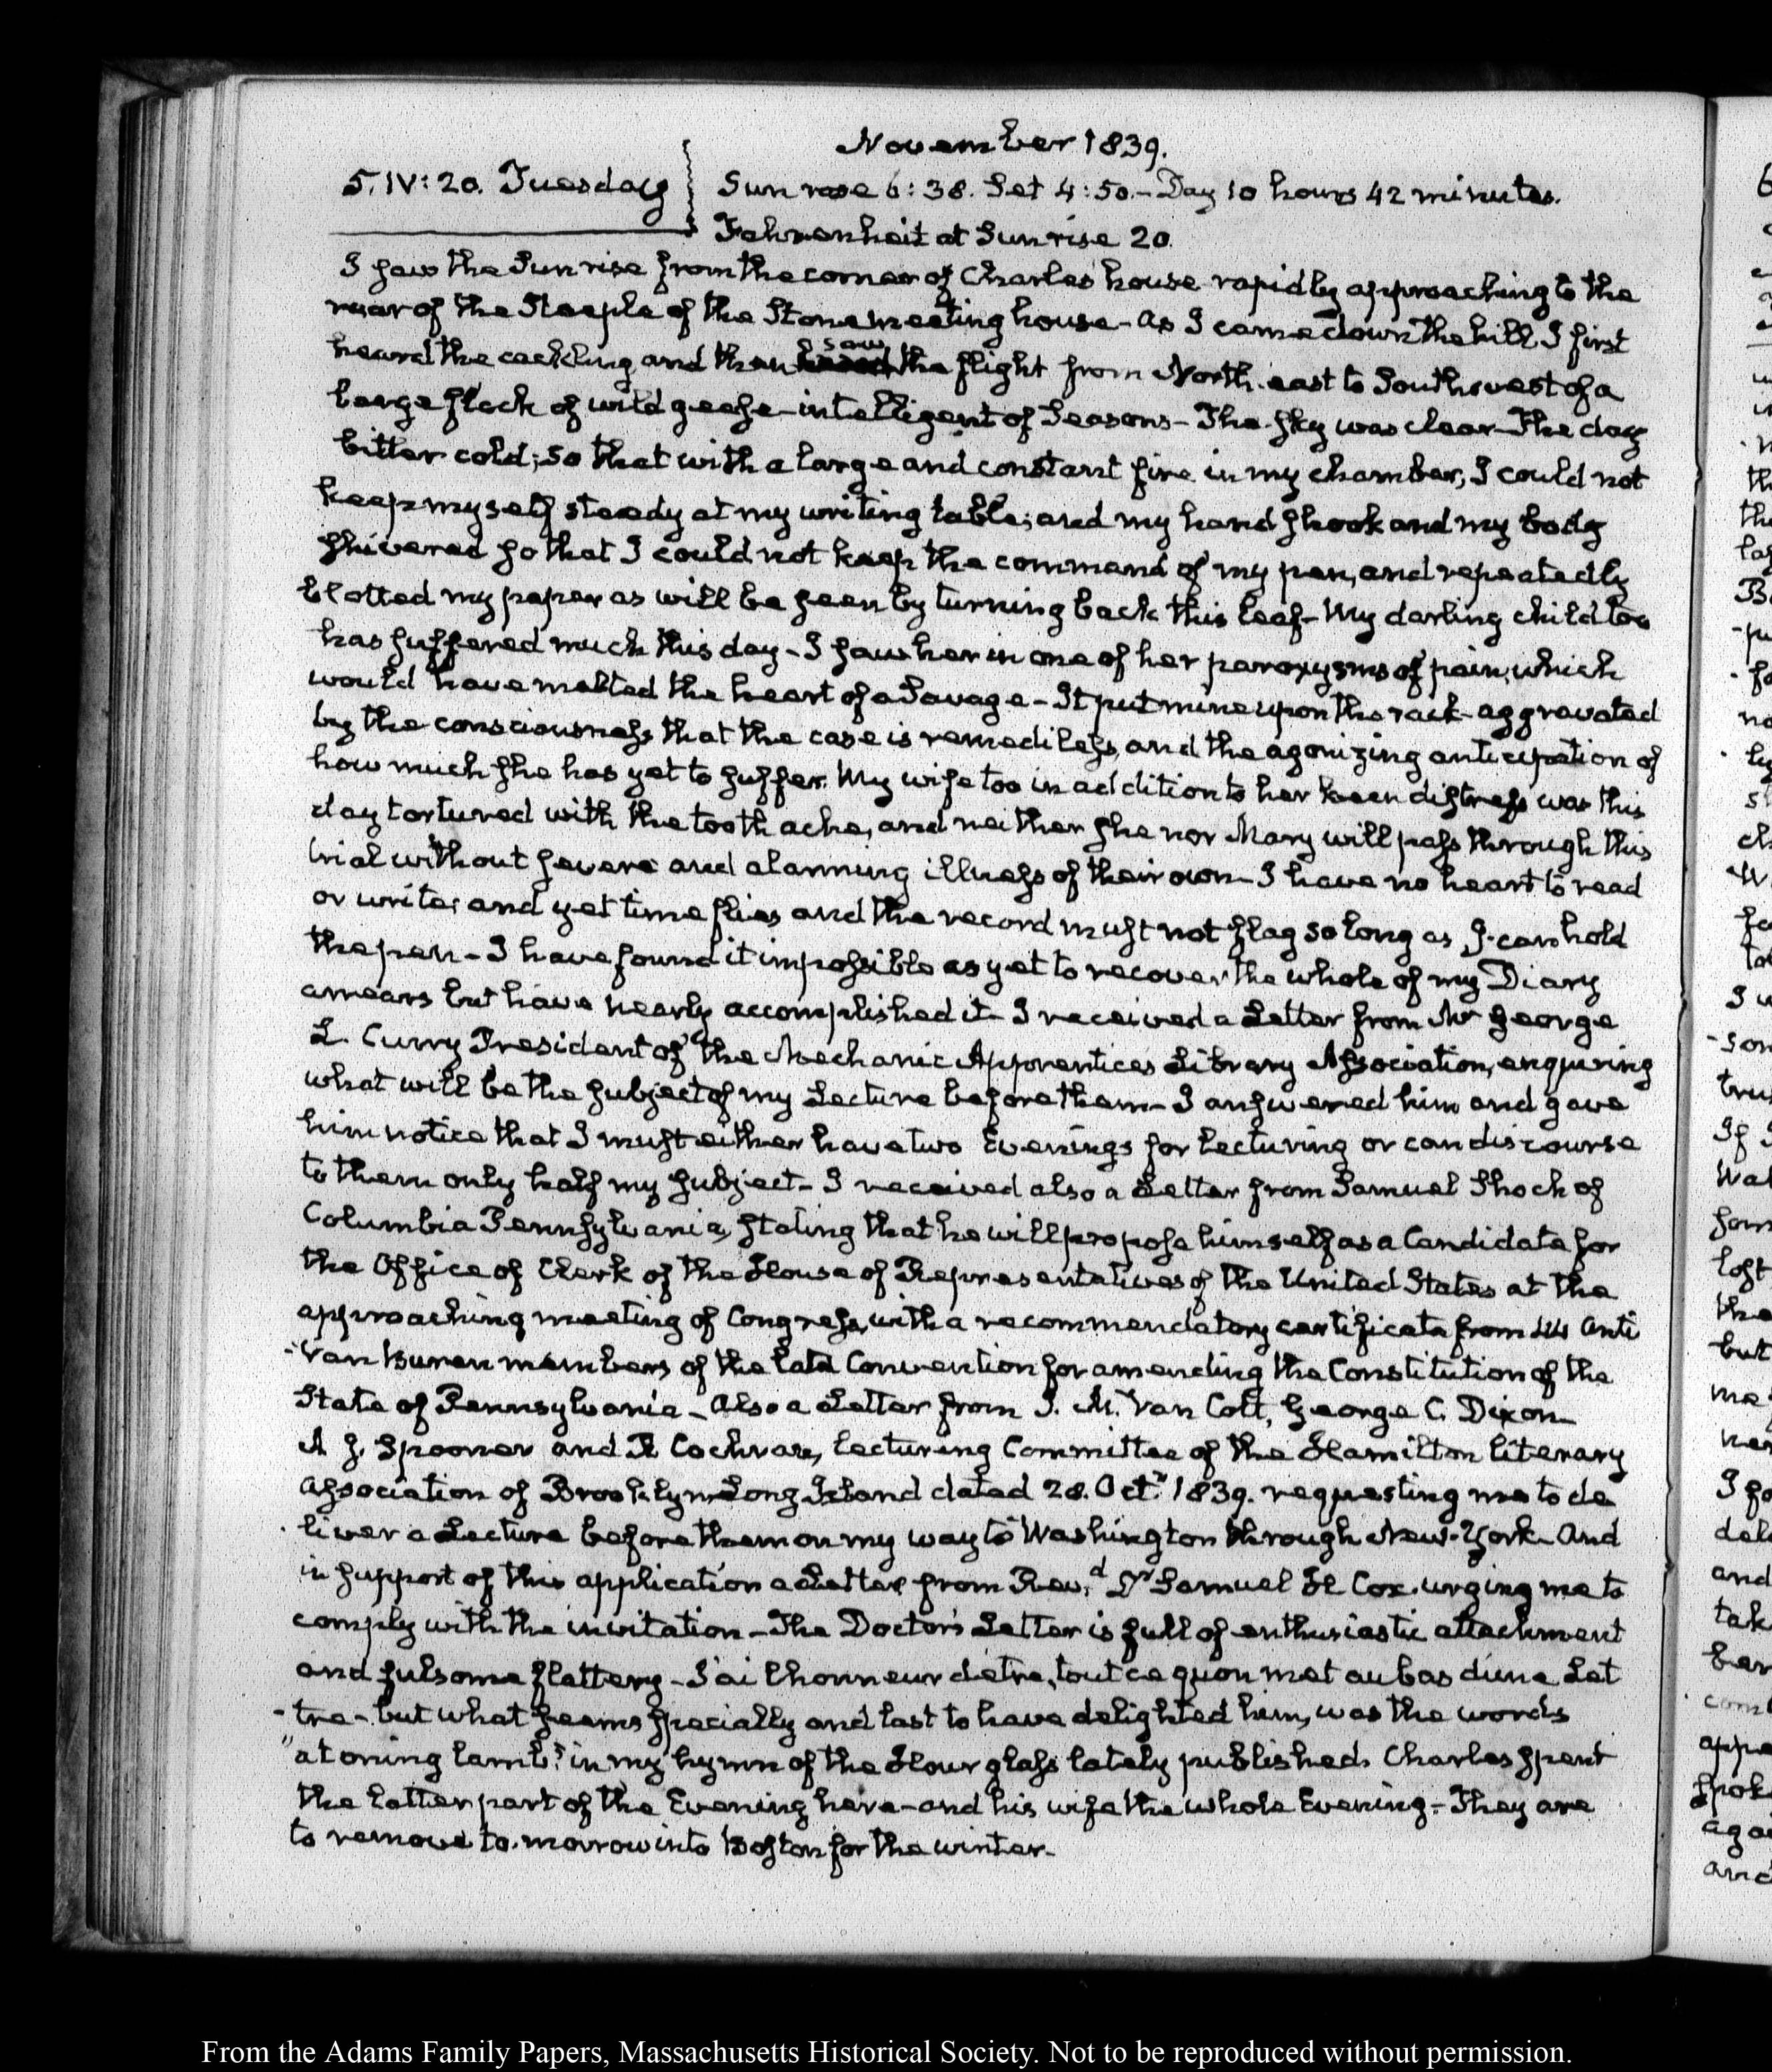 November 1839.
5. IV: 20. Tuesday
Sun rose 6: 38. Set 4: 50.- Day 10 hours 42 minutes.
Fahrenheit at Sunrise 20.
I saw the Sun rise from the corner of Charles' house rapidly approaching to the
rear of the Steeple of the Stone meeting house - As I came down the hill, I first
heard the cackling and then saw the flight from North-east to Southwest of a
large flock of wild geese - intelligent of Seasons - The sky was clear - The day
bitter cold; so that with a large and constant fire in my chamber, I could not
keep myself steady at my writing table; and my hand shook and my body
shivered so that I could not keep the command of my pen, and repeatedly
blotted my paper as will be seen by turning back this leaf - My darling child too
has suffered much this day - I saw her in one of her paroxysms of pain, which
would have melted the heart of a Savage - It put mine upon the rack - aggravated
by the consciousness that the case is remediless, and the agonizing anticipation of
how much she has yet to suffer. My wife too in addition to her keen distress was this
day tortured with the tooth ache, and neither she nor Mary will pass through this
trial without severe and alarming illness of their own - I have no heart to read
or write; and yet time flies and the record must not flag so long as I can hold
the pen - I have found it impossible as yet to recover the whole of my Diary
arrears but have nearly accomplished it - I received a Letter from Mr George
L. Curry President of the Mechanic Apprentices Library Association, enquiring
what will be the subject of my Lecture before them - I answered him and gave
him notice that I must either have two Evenings for lecturing or can discourse
to them only half my subject - I received also a Letter from Samuel Shoch of
Columbia Pennsylvania, stating that he will propose himself as a Candidate for
the Office of Clerk of the House of Representatives of the United States at the
approaching meeting of Congress, with a recommendatory certificate from Anti
-Van Buren members of the late Convention for amending the Constitution of the
State of Pennsylvania - Also a Letter from J. M. Van Cott, George C. Dixon
A J. Spooner and R Cochran, lecturing Committee of the Hamilton literary
Association of Brooklyn Long Island dated 28. Octr 1839. requesting me to de
-liver a Lecture before them on my way to Washington through New-York - And
in support of this application a Letter from Revd Dr Samuel H Cox urging me to
comply with the invitation - The Doctor's Letter is full of enthusiastic attachment
and fulsome flattery - J'ai lhonneur detre, tout ce quon met au bas dune Let
-tre - but what seems specially and last to have delighted him, was the words
"atoning lamb" in my hymn of the Hour glass lately published. Charles spent
the latter part of the Evening here - and his wife the whole Evening - They are
to remove to-morrow into Boston for the winter.
From the Adams Family Papers, Massachusetts Historical Society. Not to be reproduced without permission.